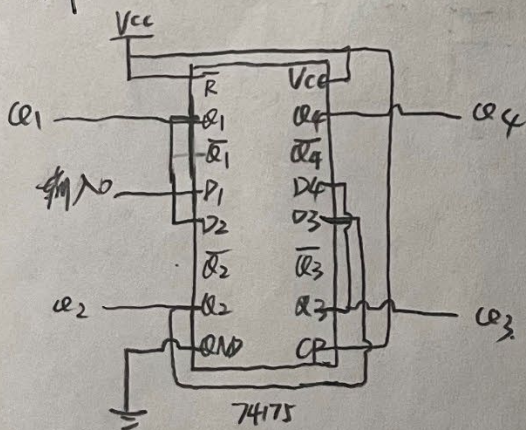 Vcc
R̅ Vcc
Q1 Q1 Q4 Q4
Q̅1 Q̅4
输入 D1 D4
D2 D3
Q̅2 Q̅3
Q2 Q2 Q3 Q3
GND CP
74175